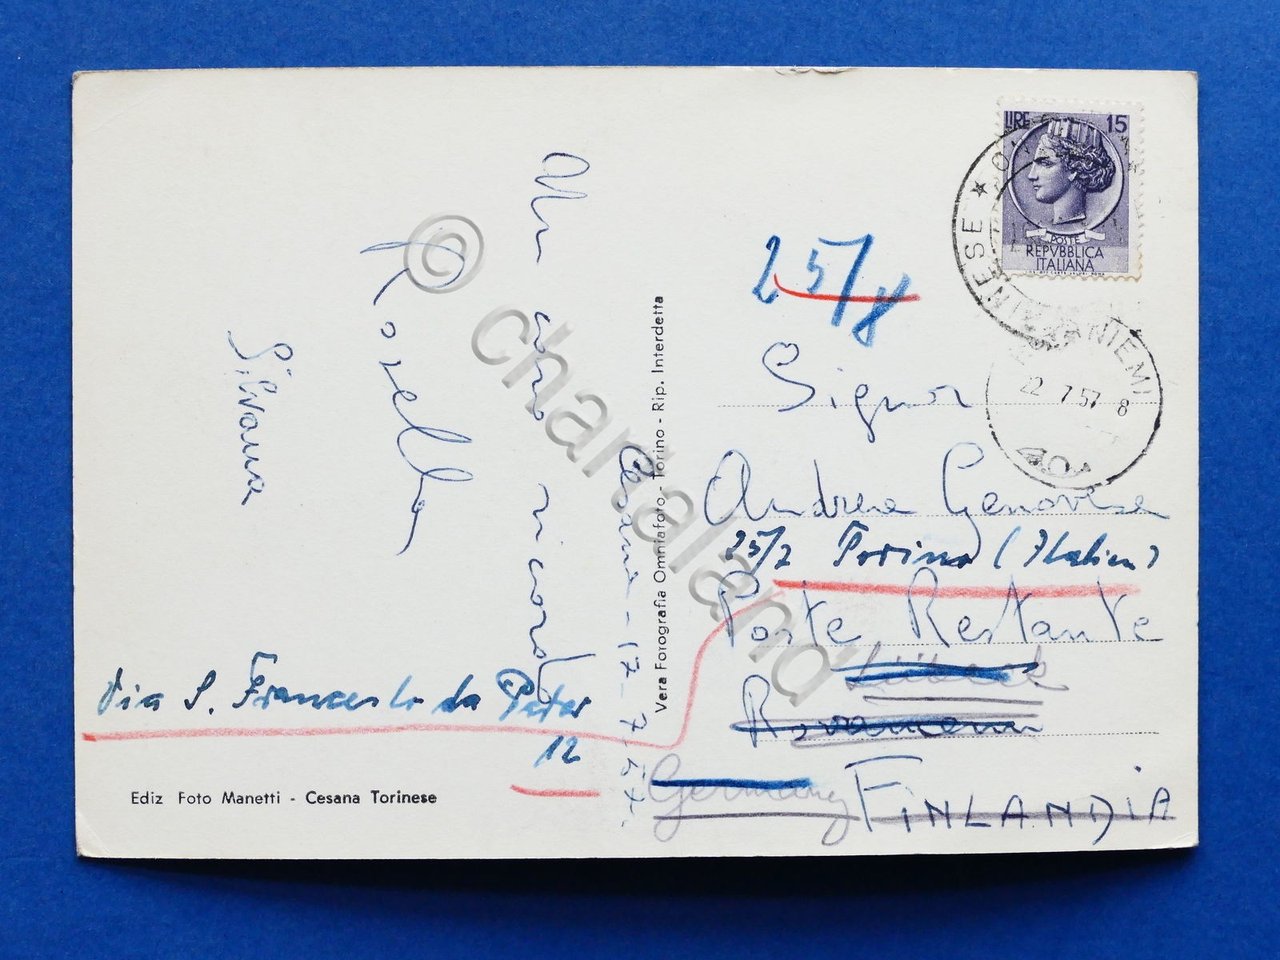 Un caro ricordo
Rosella
Silvana
Cesana - 17-7-57.
Via S. Francesco da
12
Ediz Foto Manetti - Cesana Torinese
Vera Forografia Omniafoto - Torino - Rip. Interdetta
LIRE 15
POSTE
REPVBBLICA
ITALIANA
22 7 57 8
25/8
Signor
Andrea Genovese
25/7 Torino (Italien)
Poste Restante
Lübeck
Rovaniemi
Germany
FINLANDIA
© chartaland